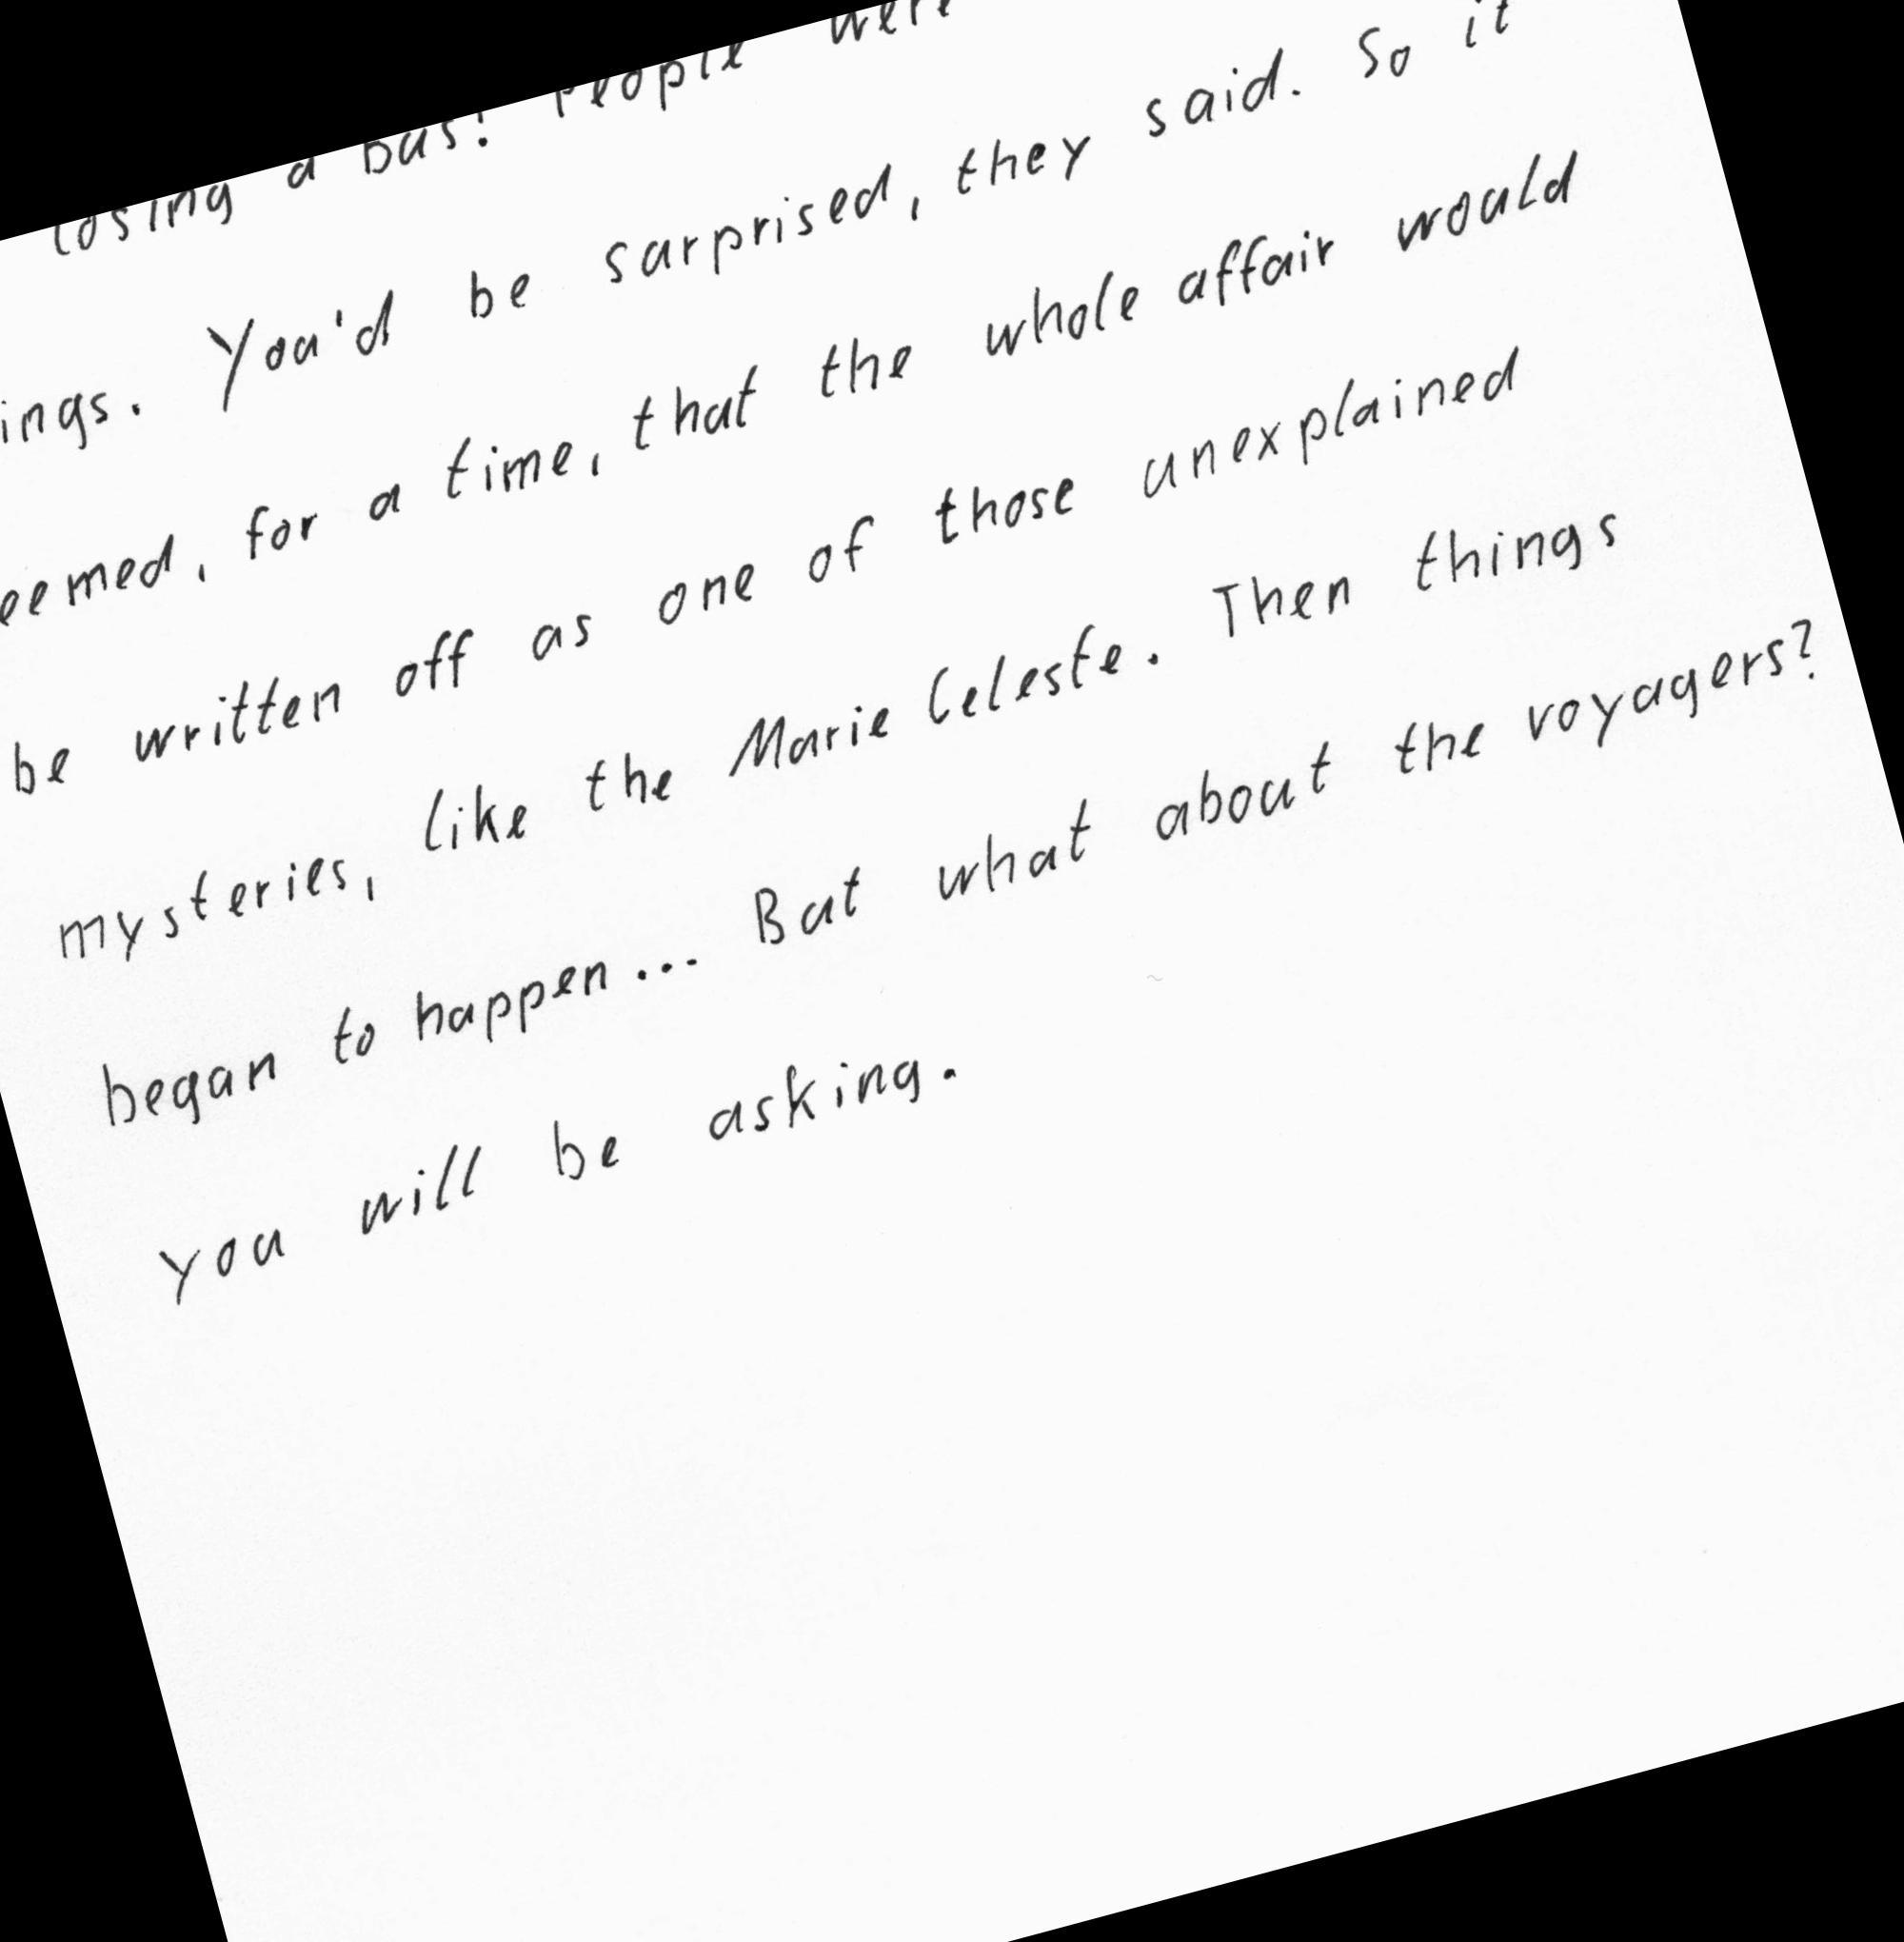 losing a bus! People were
ings. You'd be surprised, they said. So it
eemed, for a time, that the whole affair would
be written off as one of those unexplained
mysteries, like the Marie Celeste. Then things
began to happen... But what about the voyagers?
you will be asking.